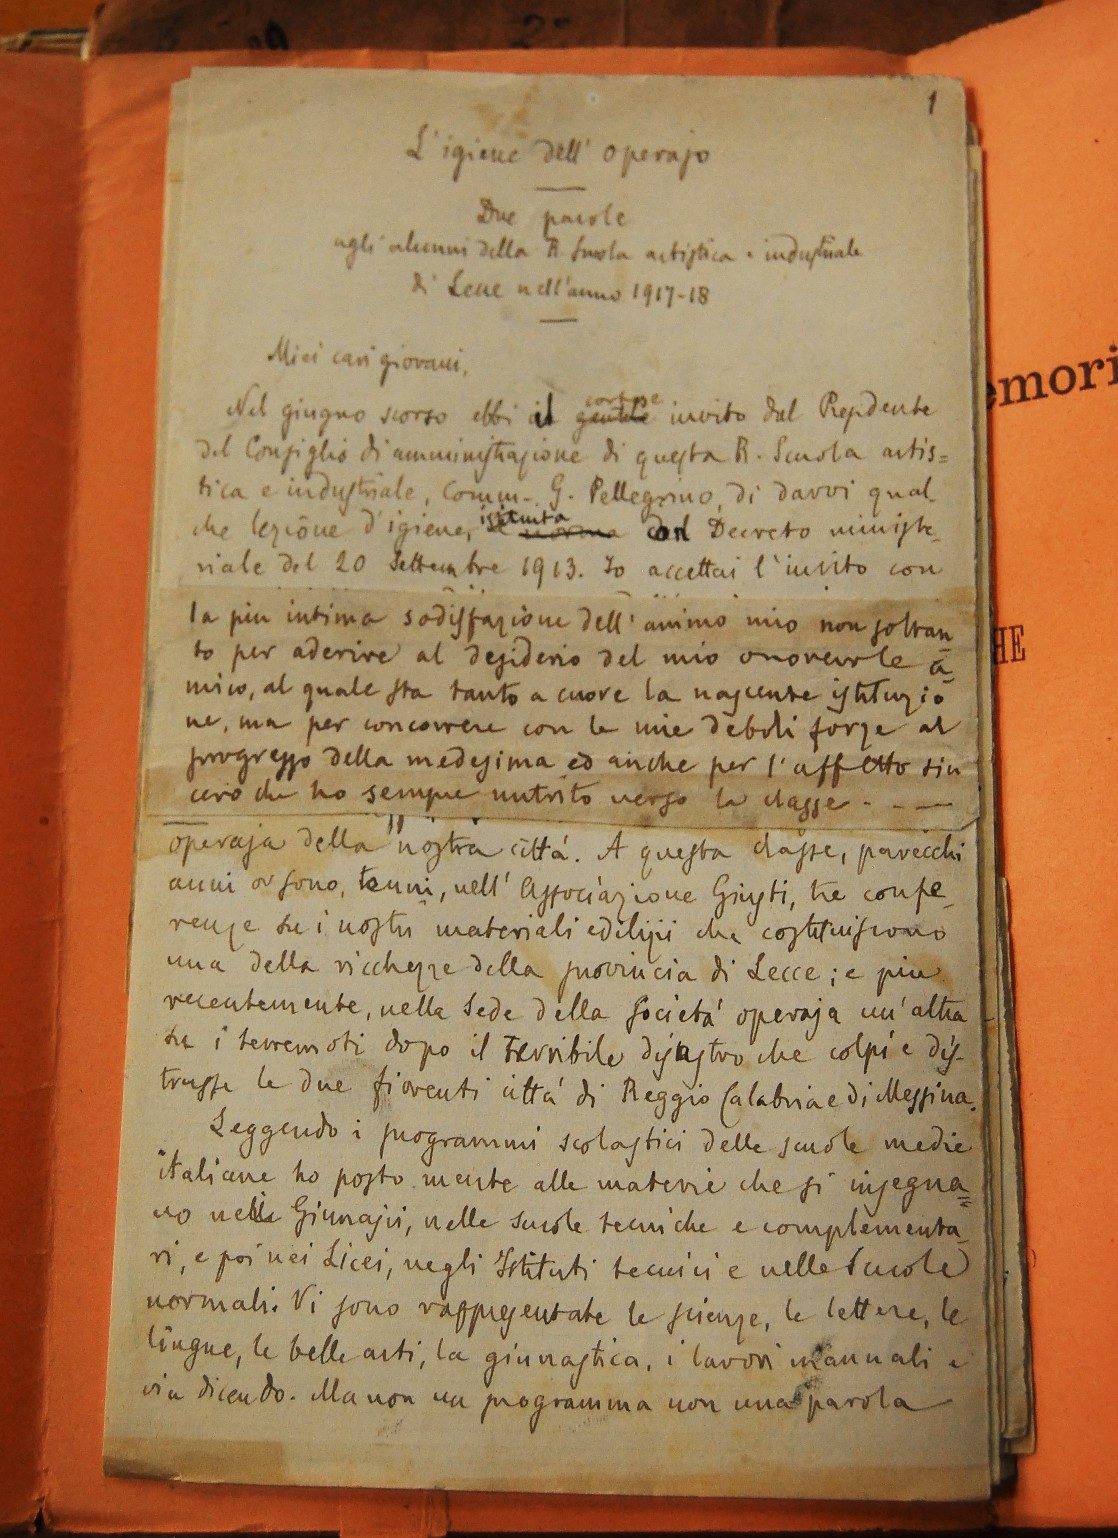 1
L'igiene dell'operajo
Due parole
agli alunni della R. Scuola artistica e industriale
di Lecce nell'anno 1917-18
Miei cari giovani,
Nel giugno scorso ebbi il gentile cortese invito dal Presidente
del Consiglio di amministrazione di questa R. Scuola artis=
tica e industriale, Comm. G. Pellegrino, di darvi qual
che lezione d'igiene, istituita norma dal Decreto ministe-
riale del 20 Settembre 1913. Io accettai l'invito con
la piu intima sodisfazione dell'animo mio non soltan
to per aderire al desiderio del mio onorevole a-
mico, al quale sta tanto a cuore la nascente istituzio
ne, ma per concorrere con le mie deboli forze al
progresso della medesima ed anche per l'affetto sin
cero che ho sempre nutrito verso la classe - - —
operaja della nostra città. A questa classe, parecchi
anni or sono, tenni, nell'Associazione Giusti, tre confe-
renze su i nostri materiali edilizii che costituiscono
una della ricchezze della provincia di Lecce; e piu
recentemente, nella sede della Società operaja un'altra
su i terremoti dopo il terribile disastro che colpí e dis-
trusse le due fiorenti città di Reggio Calabria e di Messina.
Leggendo i programmi scolastici delle scuole medie
italiane ho posto mente alle materie che si insegna=
no nelle Ginnasii, nelle scuole tecniche e complementa-
ri, e poi nei Licei, negli Istituti tecnici e nelle Scuole
normali. Vi sono rappresentate le scienze, le lettere, le
lingue, le belle arti, la ginnastica, i lavori mannuali e
via dicendo. Ma non un programma non una parola
emori
HE